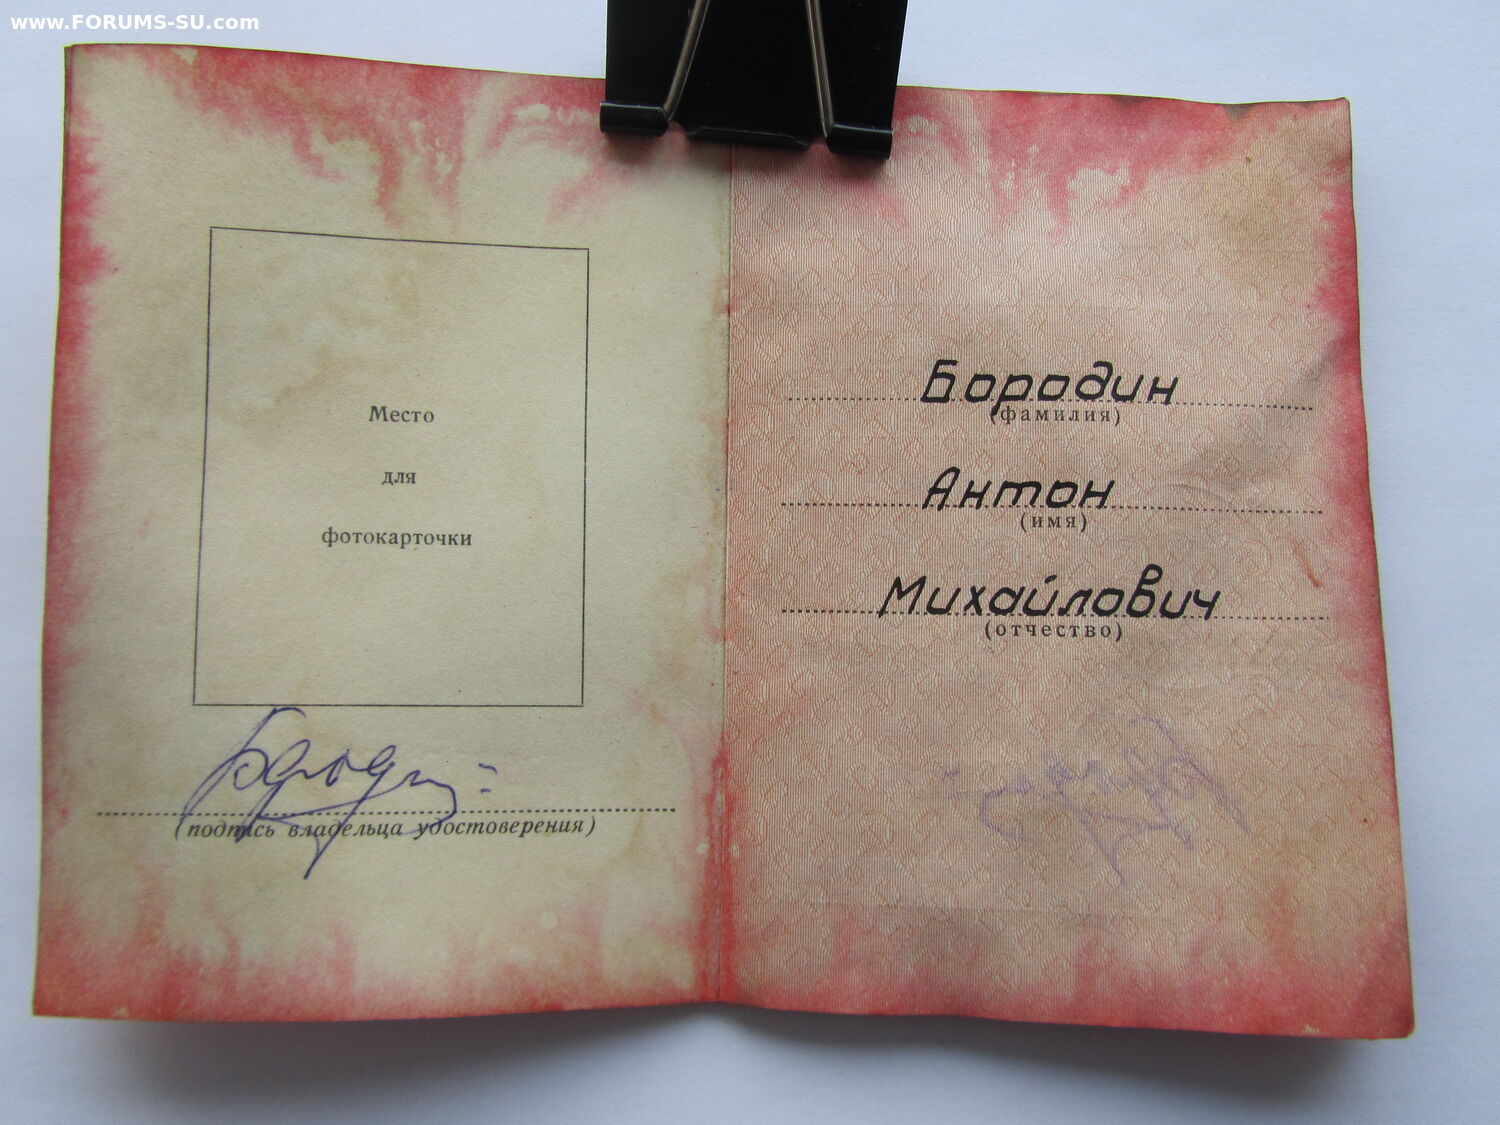 www.FORUMS-SU.com
Место
для
фотокарточки
(подпись владельца удостоверения)
Бородин
(фамилия)
Антон
(имя)
Михайлович
(отчество)